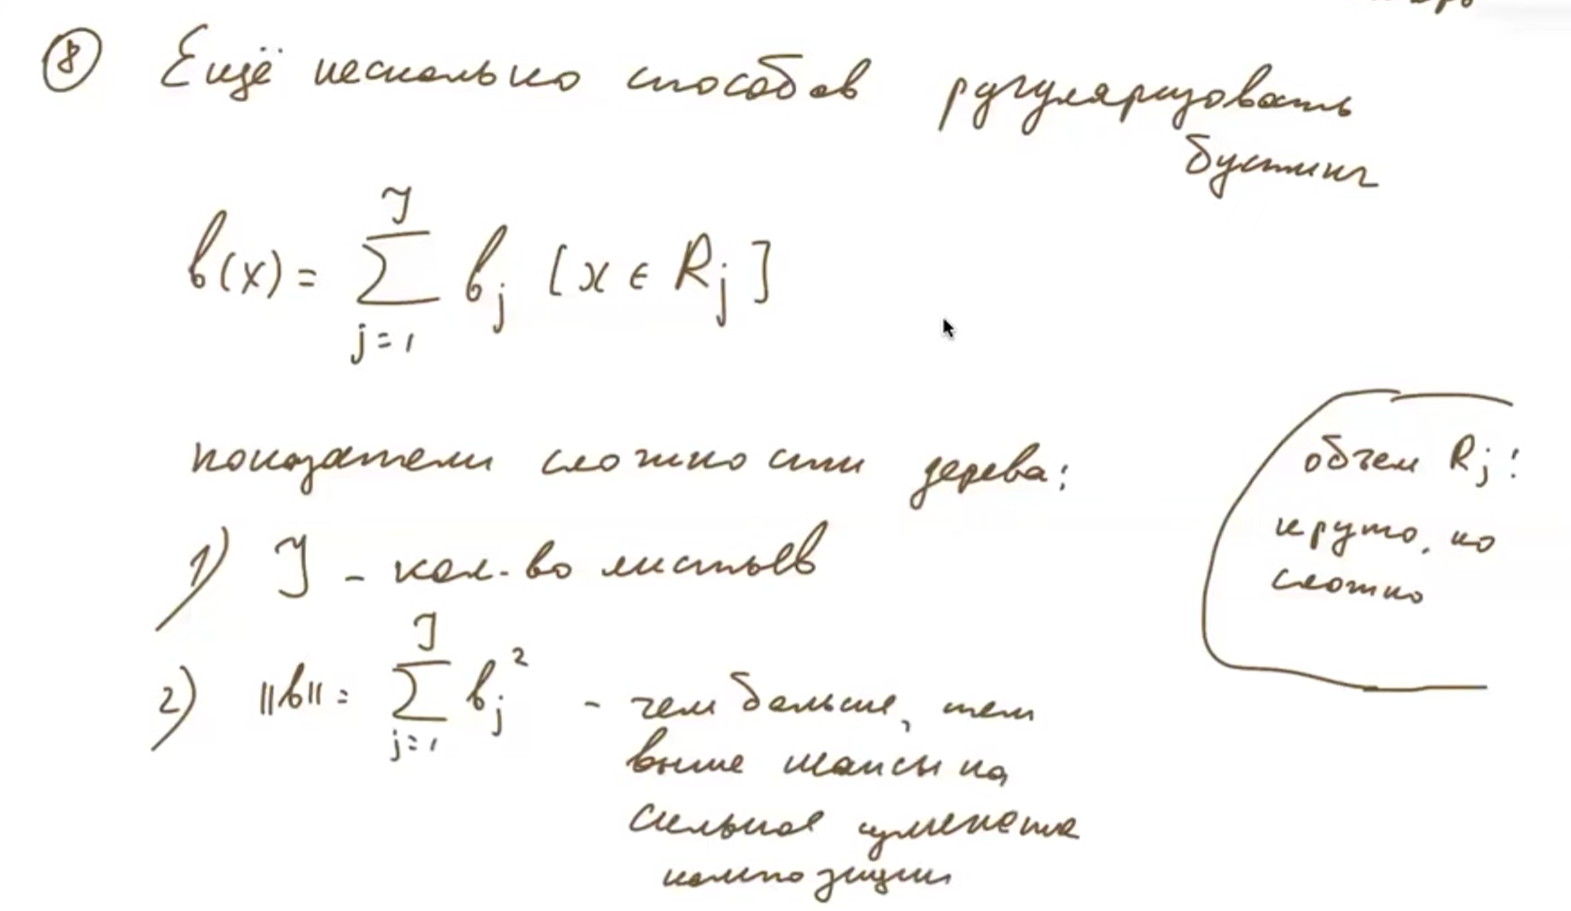 ⑧ Ещё несколько способов ругуляризовать
бустинг
b(x) = \sum_{j=1}^{J} b_j [x ∈ R_j]
показатели сложности дерева:
1) J - кол-во листьев
2) ||b|| = \sum_{j=1}^{J} b_j^2 - чем больше, тем
выше шансы на
сильное изменение
композиции
объем R_j:
круто, но
сложно